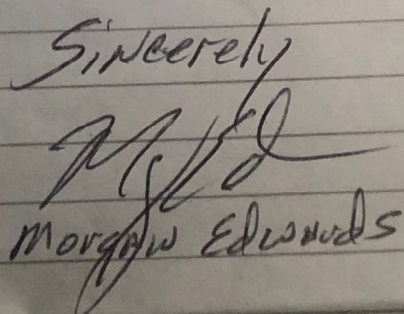 Sincerely
Morgan Edwards